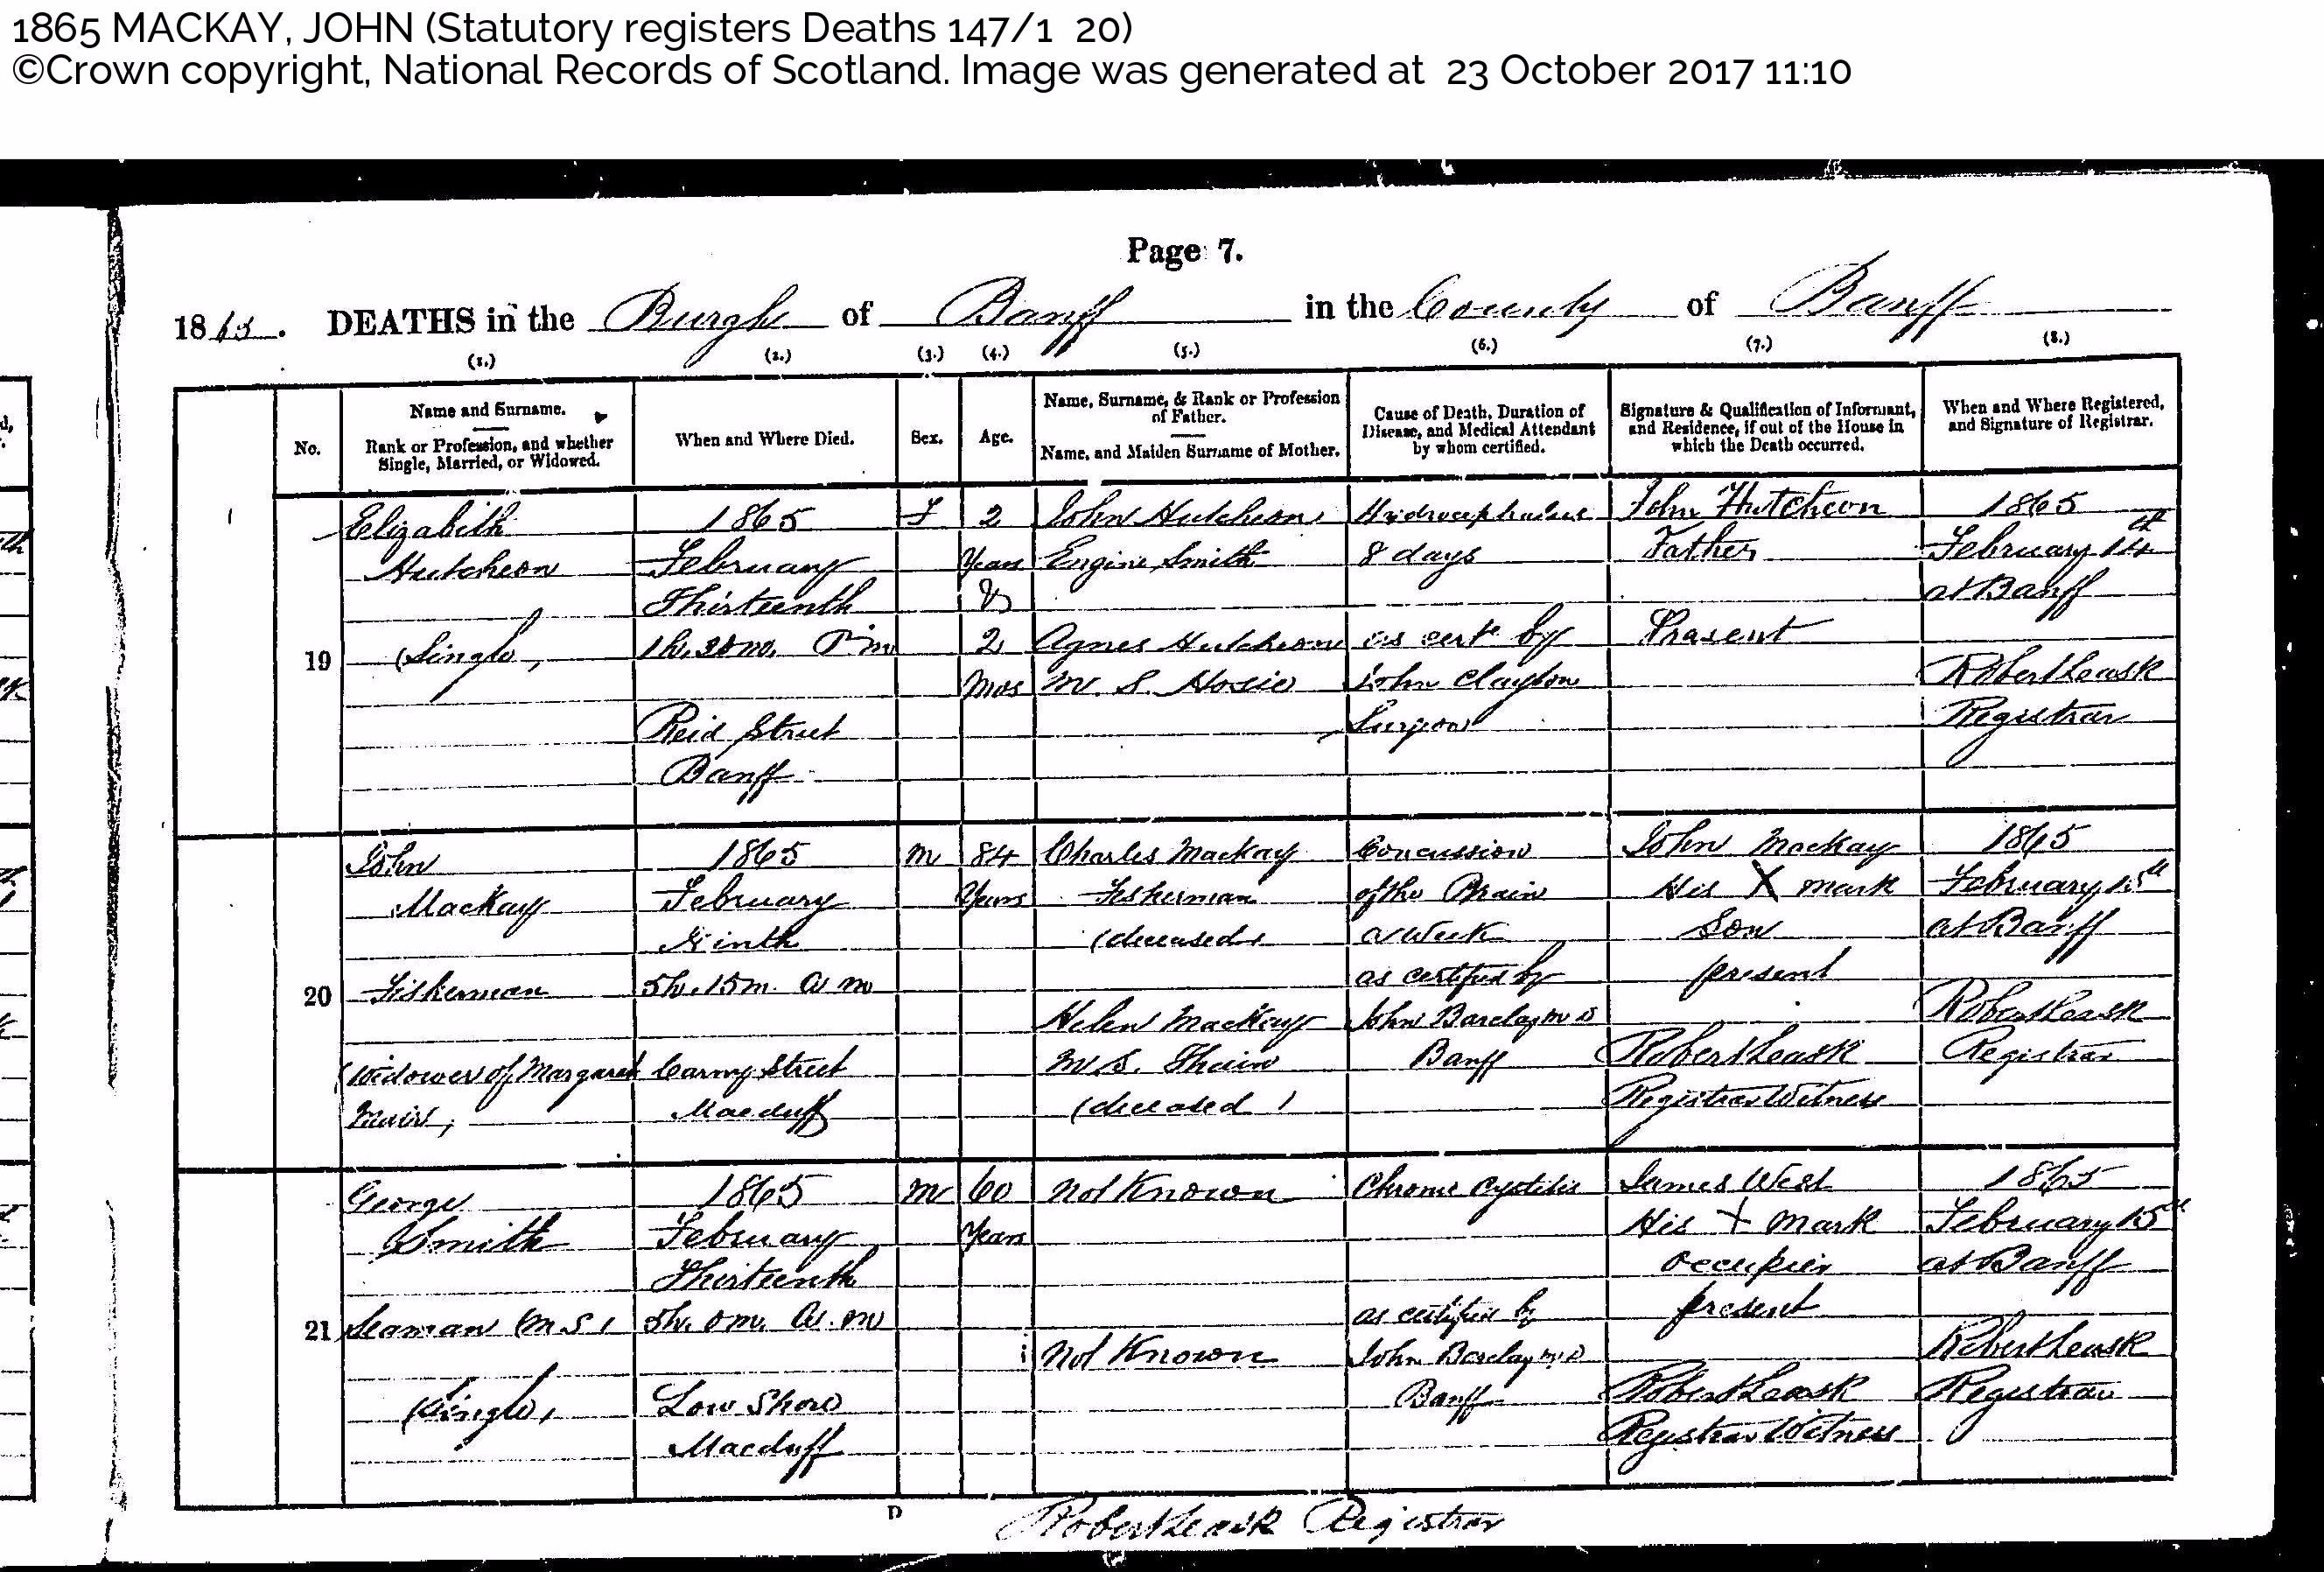 1865 MACKAY, JOHN (Statutory registers Deaths 147/1 20)
©Crown copyright, National Records of Scotland. Image was generated at 23 October 2017 11:10
Page 7.
1865. DEATHS in the Burgh of Banff in the County of Banff
(1.) (2.) (3.) (4.) (5.) (6.) (7.) (8.)
No.
Name and Surname.
Rank or Profession, and whether
Single, Married, or Widowed.
When and Where Died.
Sex.
Age.
Name, Surname, & Rank or Profession
of Father.
Name, and Maiden Surname of Mother.
Cause of Death, Duration of
Disease, and Medical Attendant
by whom certified.
Signature & Qualification of Informant,
and Residence, if out of the House in
which the Death occurred.
When and Where Registered,
and Signature of Registrar.
19
Elizabeth
Hutcheon
(Single)
1865
February
Thirteenth
1h. 30m. P m
Reid Street
Banff
F
2
Years
&
2
Mos
John Hutcheon
Engine Smith
Agnes Hutcheon
M. S. Hosie
Hydrocephalus
8 days
as cert. by
John Clayton
Surgeon
John Hutcheon
Father
Present
1865
February 14th
at Banff
Robert Leask
Registrar
20
John
MacKay
Fisherman
(Widower of Margaret
Muir)
1865
February
Ninth
5h. 15m. A m
Carmy Street
Macduff
M
84
Years
Charles MacKay
Fisherman
(deceased)
Helen MacKay
M.S. Thain
(deceased)
Concussion
of the Brain
a week
as certified by
John Barclay M D
Banff
John Mackay
His X mark
Son
present
Robert Leask
Registrar Witness
1865
February 15th
at Banff
Robert Leask
Registrar
21
George
Smith
Seaman (M.S)
(Single)
1865
February
Thirteenth
5h. 0m. A. m
Low Shore
Macduff
M
60
Years
Not Known
Not Known
Chronic Cystitis
as certified by
John Barclay M.D
Banff
James West
His X Mark
Occupier
present
Robert Leask
Registrar Witness
1865
February 15th
at Banff
Robert Leask
Registrar
D
Robert Leask Registrar